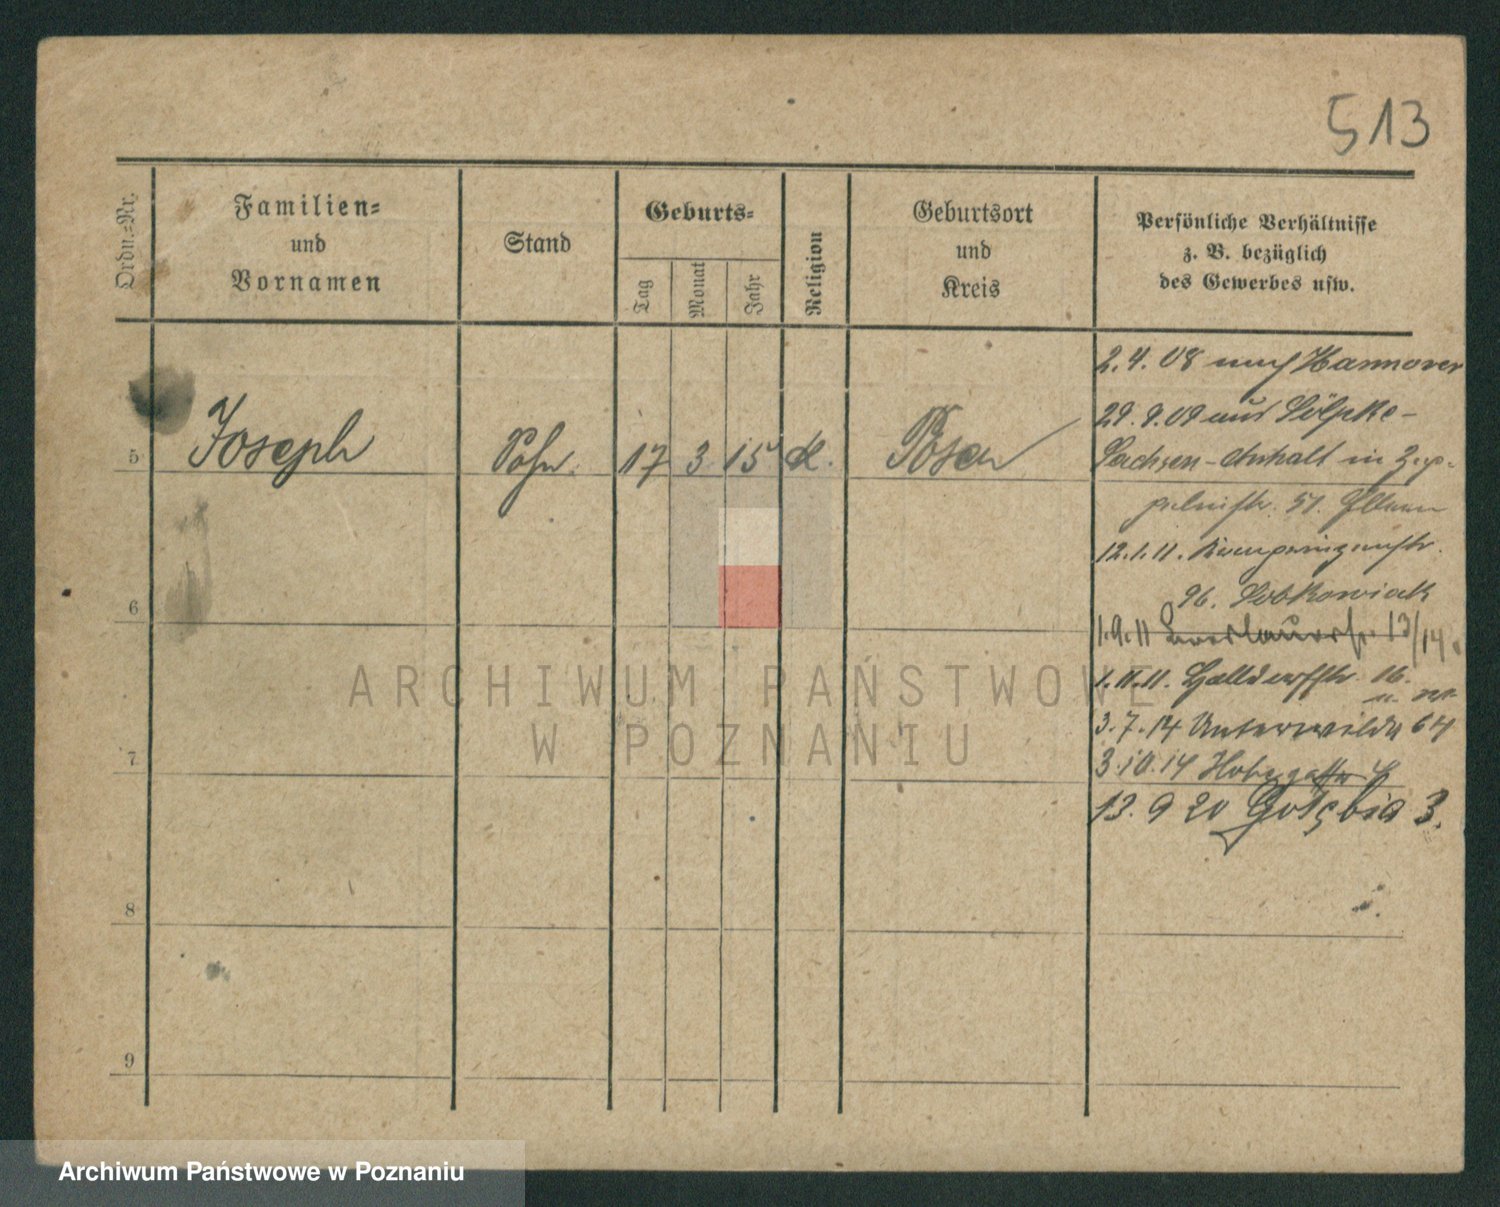 513
Ordn.=Nr.
Familien=
und
Vornamen
Stand
Geburts=
Tag
Monat
Jahr
Religion
Geburtsort
und
Kreis
Persönliche Verhältnisse
z. B. bezüglich
des Gewerbes usw.
2.4.08 nach Hannover
29.9.09 aus Sölpke-
5 Joseph Sohn. 17 3 15 K. Posen
Sachsen-Anhalt in
51.
12.1.11. Kronprinzenstr.
96. Sobkowiak
6
1.9.11 13/14
1.11.11. 16.
3.7.14 Unterwilda 64
7
3.10.14
13. 9 20 3.
8
9
ARCHIWUM PAŃSTWOWE
W POZNANIU
Archiwum Państwowe w Poznaniu